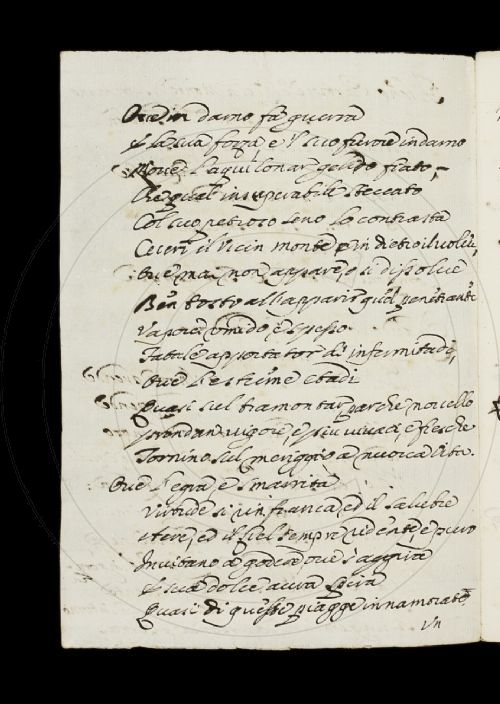 Ove in darno fa guerra
E la sua forza e 'l suo furore indarno
Move l'aquilonar gelido fiato,
Che qual insuperabile steccato
Col suo petroso seno lo contrasta
Ceceri il vicin monte e in dietro il volve,
Ove mai non appare, o si dissolve
Ben tosto all'apparir quel penetrante
Vapore umido e spesso
Fatale apportator d'infermitadi,
Ove l'estreme etadi
Quasi sul tramontar par che novello
prendan vigore, e più vivaci, e fresche
Tornino sul meriggio a nuova vita.
Ove l'egra e smarrita
virtude si rinfranca, ed il salubre
etere, ed il ciel sempre ridente, e puro
Invitano a godere, ove s'aggira
E sua dolce aura spira
Quasi di queste piagge innamorato
Un